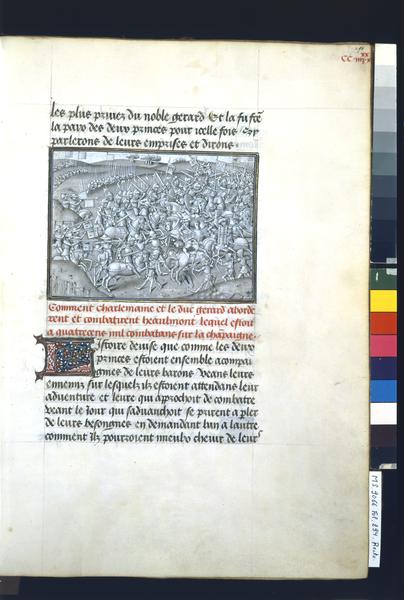 CC iiij xx x
les plus priuez du noble gerard Et la fu fcē
la paix des deux princes pour icelle fois / Cy
parlerons de leurs emprises et dirons.
Comment charlemaine et le duc gerard aborde
rent et combatirent heaulmont lequel estoit
a quatre cens mil combatans sur la champaigne.
Listoire deuise que comme les deux
princes estoient ensemble acompai
gnies de leurs barons Veans leurs
ennemis sur lesquelz ilz estoient attendans leur
aduenture et leure qui approchoit de combatre
Veant le Iour qui saduanchoit se prirent a pler
de leurs besongnes en demandant lun a lautre
comment ilz pourroient mieulx cheuir de leurs
MS 9066 Fol. 294. Recto.